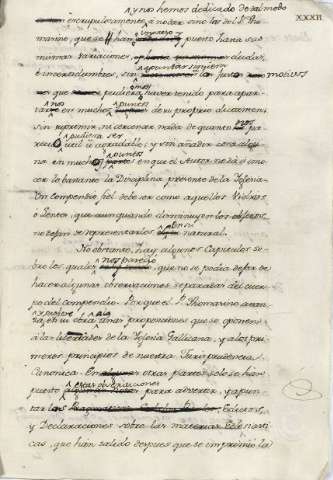 y nos hemos dedicado de tal modo
XXXII
escrupulosamente á no dar sino las del P. Tho
masino, que se han puesto hasta sus
mismas variaciones, dudas,
é incertidumbres, sin las motivos
que él pudiera haver tenido para apar
en muchos puntos de su propio dictamen
sin suprimir, ni cercenar nada de quanto nos pa
reció pudiera ser util ó agradable; y sin añadir cosa algu
na en muchos puntos en que el Autor no dá á cono
cer lo bastante la Disciplina presente de la Iglesia.
Un compendio fiel debe ser como aquellos Vidrios,
ó Lentes, que aun quando disminuyen los objetos,
no dejan de representarlos natural.
No obstante, hay algunos Capitulos so
bre los quales nos pareció, que no se podia dejar de
hacer algunas observaciones separadas del cuer
po del compendio. Porque el P. Thomasino
una, ú otra proposiciones que se oponen
á las libertades de la Iglesia Gallicana, y á los pri
meros principios de nuestra Jurisprudencia
Canonica. En otras partes solo se han
puesto estas observaciones para advertir, y apun
tar las Edictos,
y Declaraciones sobre las materias Eclesiasti
cas, que han salido despues que se imprimió la